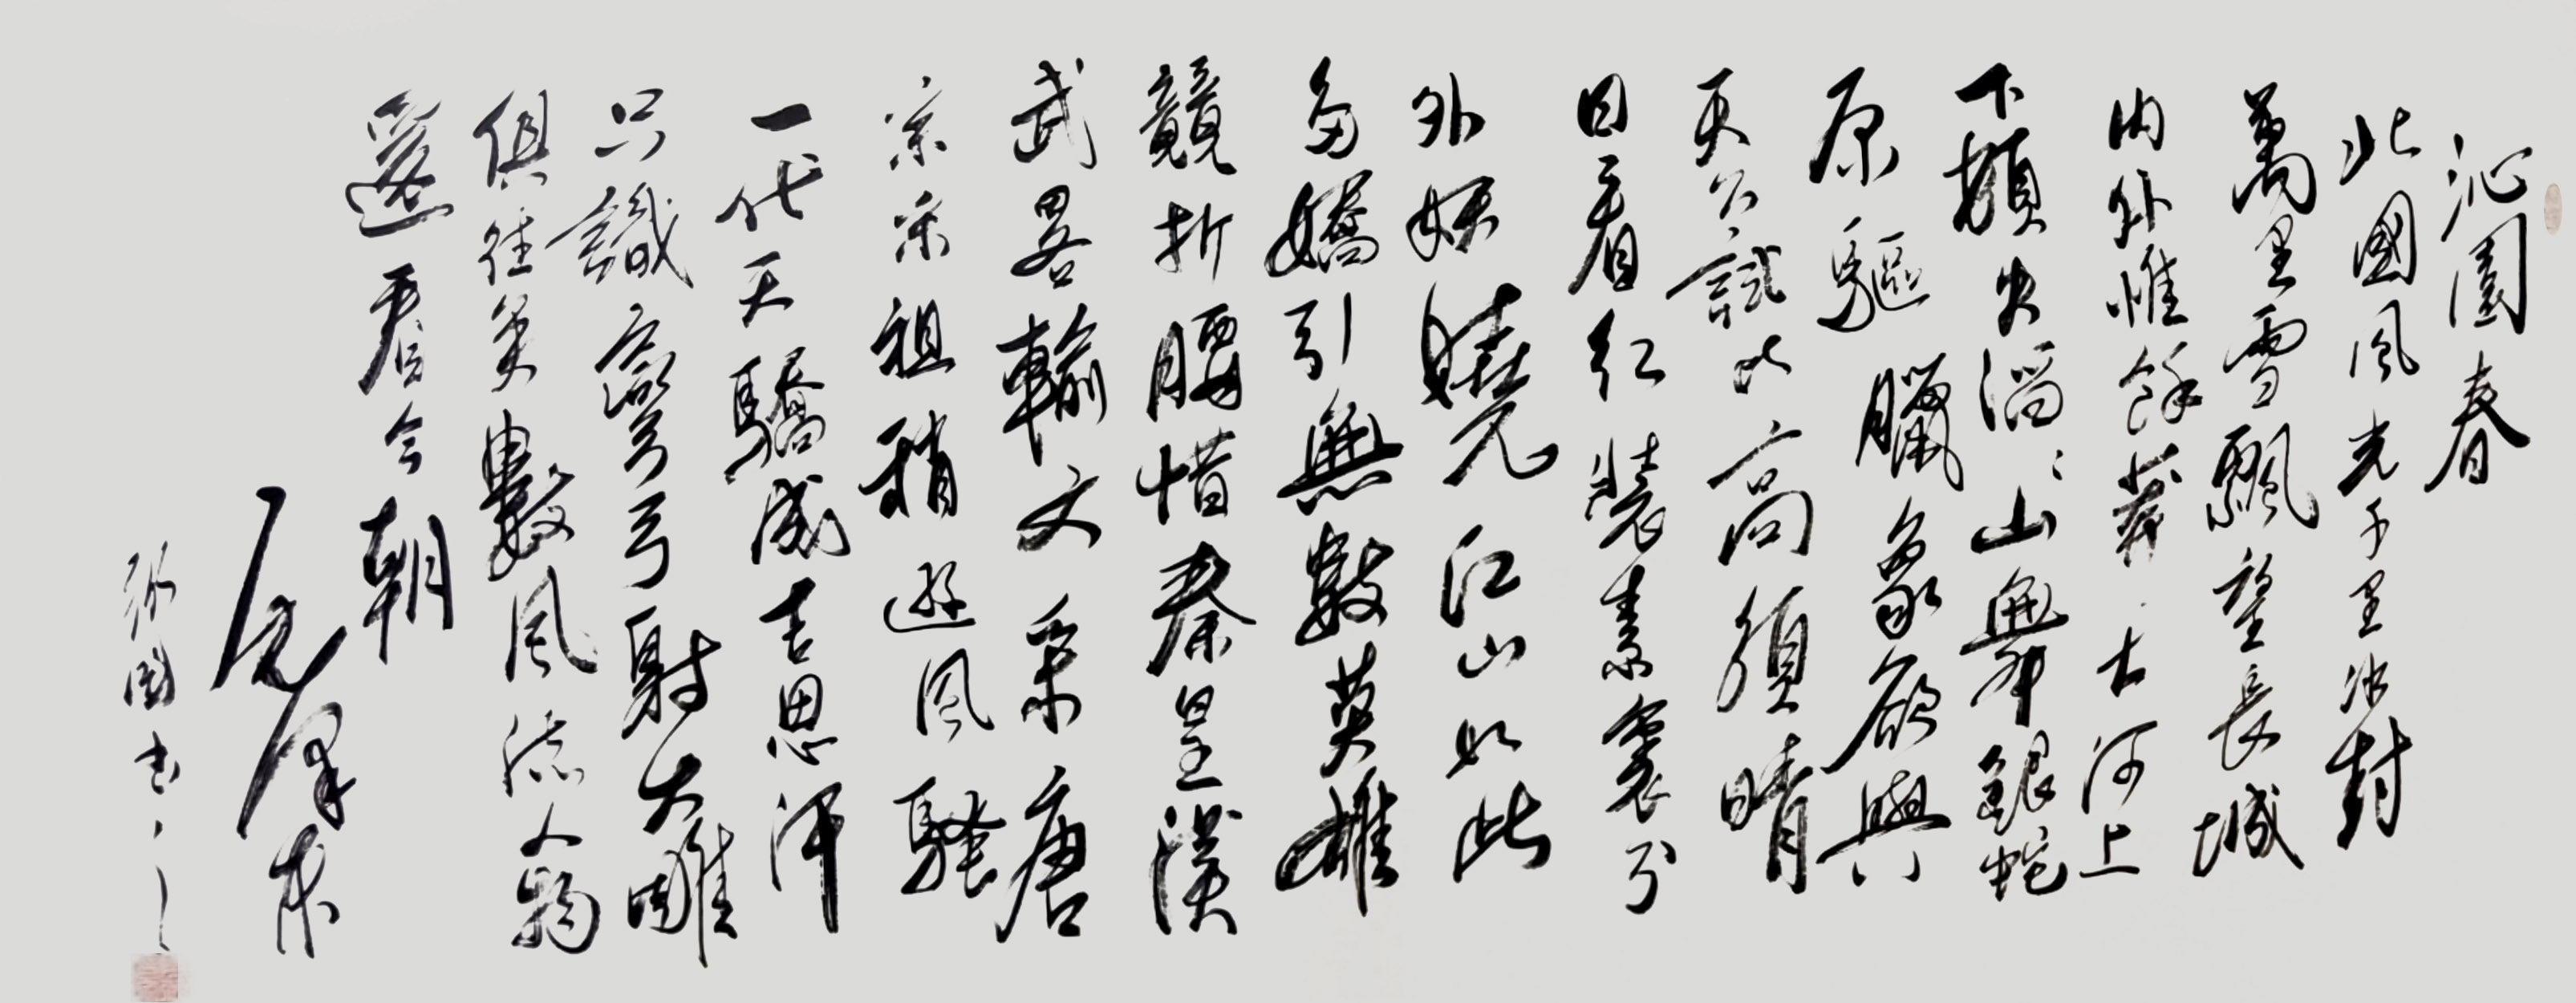 沁園春
北國風光千里冰封
萬里雪飄望長城
內外惟餘莽莽大河上
下頓失滔滔山舞銀蛇
原驅臘象欲與
天公試比高須晴
日看紅裝素裹分
外妖嬈江山如此
多嬌引無數英雄
競折腰惜秦皇漢
武略輸文采唐
宗宋祖稍遜風騷
一代天驕成吉思汗
只識彎弓射大雕
俱往矣數風流人物
還看今朝
毛澤東
國書